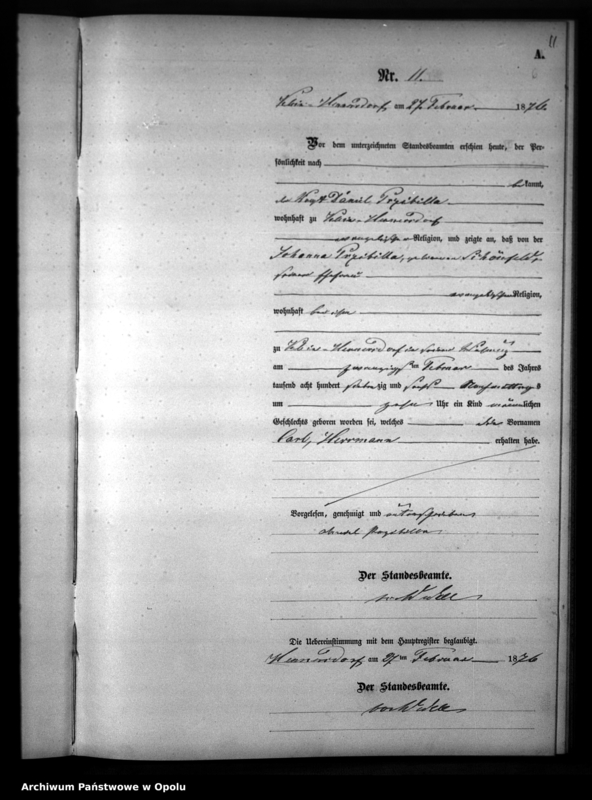 11
A.
Nr. 11.
Klein-Hennersdorf, am 27 Februar 1876.
Vor dem unterzeichneten Standesbeamten erschien heute, der Per-
sönlichkeit nach
bekannt,
Daniel Przibilla
wohnhaft zu Klein-Hennersdorf
evangelischer Religion, und zeigte an, daß von der
Johanna Przibilla, geborenen Schönfeld,
seiner Ehefrau
evangelischer Religion,
wohnhaft bei ihm
zu Klein-Hennersdorf in seiner Wohnung
am zwanzigsten Februar des Jahres
tausend acht hundert siebenzig und sechs Nachmittags
um zehn Uhr ein Kind männlichen
Geschlechts geboren worden sei, welches die Vornamen
Carl, Herrmann erhalten habe.
Vorgelesen, genehmigt und unterschrieben
Przibilla
Der Standesbeamte.
Die Uebereinstimmung mit dem Hauptregister beglaubigt.
Hennersdorf am 27ten Februar 1876
Der Standesbeamte.
Archiwum Państwowe w Opolu